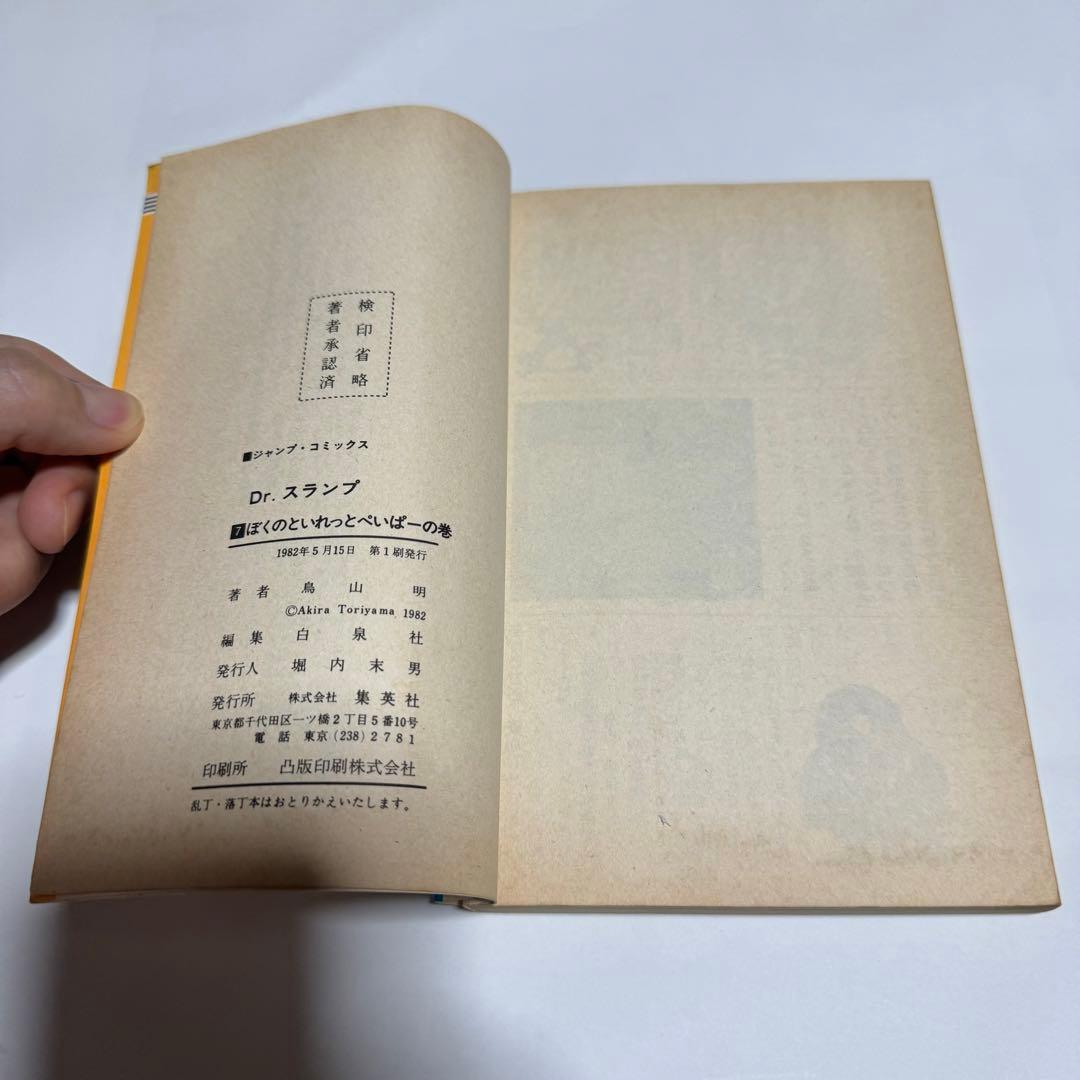 検印省略
著者承認済
■ジャンプ・コミックス
Dr. スランプ
7 ぼくのといれっとぺいぱーの巻
1982年5月15日 第1刷発行
著者 鳥山明
©Akira Toriyama 1982
編集 白泉社
発行人 堀内末男
発行所 株式会社 集英社
東京都千代田区一ツ橋2丁目5番10号
電話 東京(238)2781
印刷所 凸版印刷株式会社
乱丁・落丁本はおとりかえいたします。